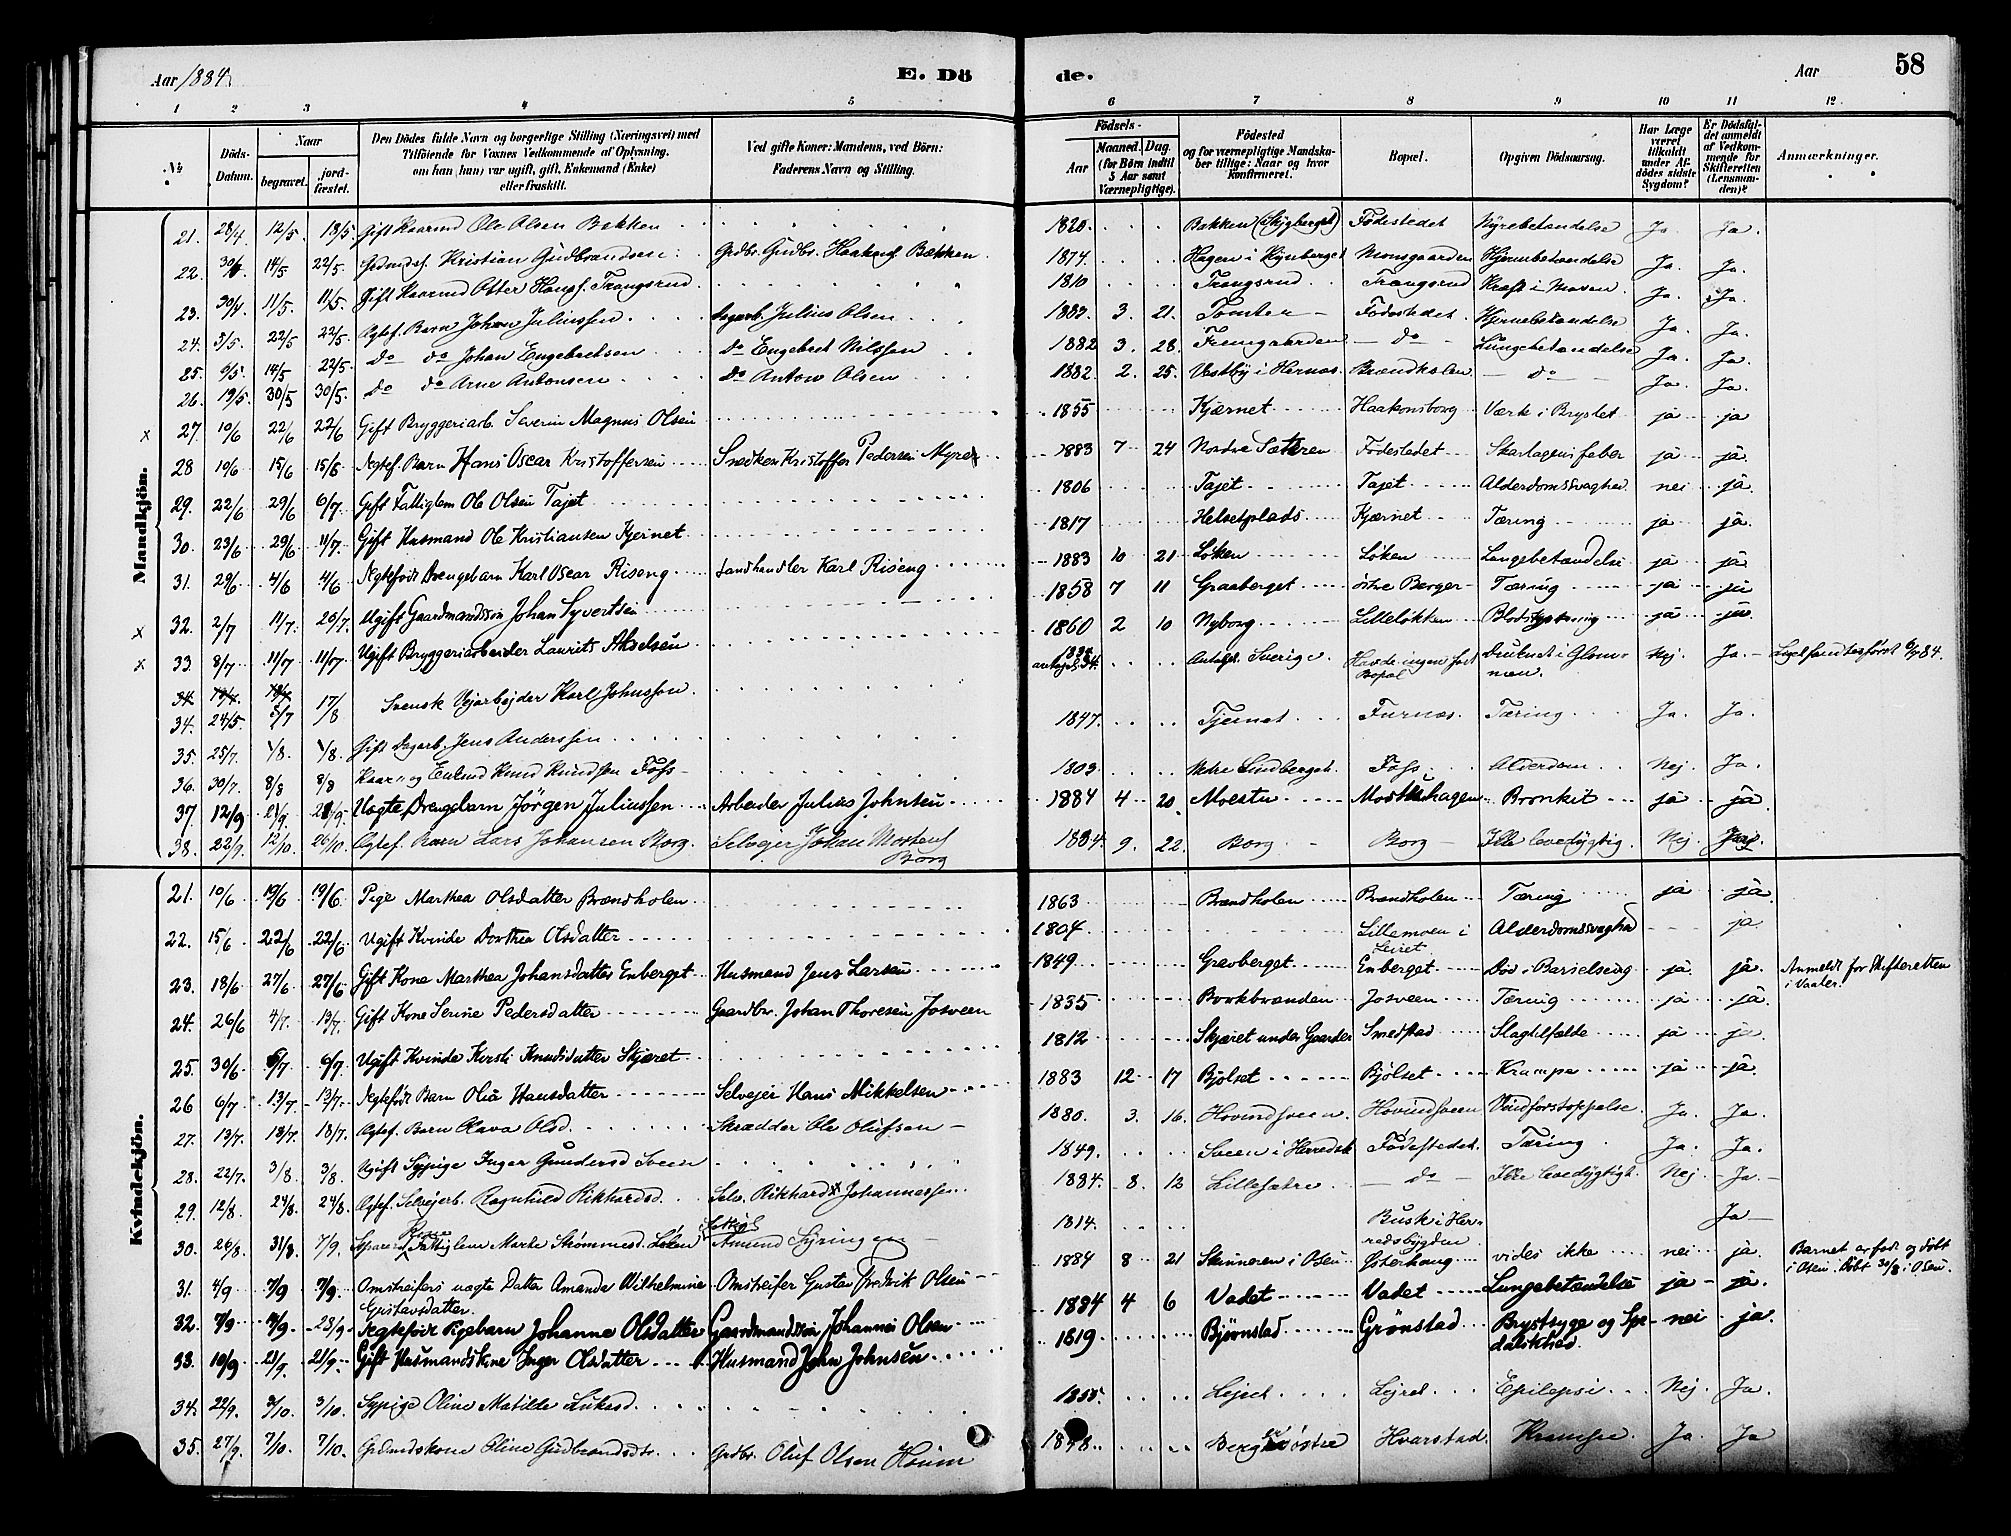 Aar 1884
E. Dö
de.
Aar
58
1 2 3 4 5 6 7 8 9 10 11 12
№
Döds-Datum.
Naar
begravet.
jordfæstet.
Den Dödes fulde Navn og borgerlige Stilling (Næringsvei) med
Tilföiende for Voxnes Vedkommende af Oplysning.
om han (hun) var ugift, gift, Enkemand (Enke)
eller fraskilt.
Ved gifte Koner: Mandens, ved Börn:
Faderens Navn og Stilling.
Födsels-
Aar
Maaned. Dag.
(for Börn indtil
5 Aar samt
Værnepligtige).
Födested
og for værnepligtige Mandska-
ber tillige: Naar og hvor
konfirmeret.
Bopæl.
Opgiven Dödsaarsag.
Har Læge
været
tilkaldt
under Af-
dödes sidste
Sygdom?
Er Dödsfal-
det anmeldt
af Vedkom-
mende for
Skifteretten
(Lensman-
den)?
Anmærkninger.
Mandkjön.
21. 28/4 12/5 18/5 Gift Kaarmd Ole Olsen Bakken 1820. Bakken Födestedet Nyrebetændelse Ja. Ja.
22. 14/5 22/5. Kristian Gudbrandsen Grdbr. Gudbr. Haakens. Bakken 1874. Monsgaarden Hjernebetændelse Ja. Ja.
23. 30/4 11/5. 11/5. Gift Kaarmd Otter Hans. Trangsrud 1810 Trangsrud Trangsrud Kræft i Maven Ja. Ja.
24. 3/5. 22/5 22/5. Ægtef. Barn Johan Juliussen Dagarb. Julius Olsen 3. 21. Tomten Födestedet Hjernebetændelse Ja. Ja.
25. 9/5. 14/5 22/5. do do Johan Engebretsen do Engebret Nilssen 1882 3. 28. Fremgaarden do Lungebetændelse Ja. Ja.
26. 19/5. 30/5 30/5. do do Arne Antonsen do Anton Olsen 1882. 2. 25. Vestby i Hernæs Brændholen do Ja. Ja.
x 27. 10/6 22/6 22/6 Gift Bryggeriarb. Severin Magnus Olsen 1855 Kjærnet Haakonsborg Værk i Brystet ja ja
28 10/6 15/6 15/6 Ægtef. Barn Hans Oscar Kristoffersen Snedker Kristoffer Pedersen Myren 1883 7 24 Nordre Sætren Födestedet Skarlagensfeber ja ja
29. 22/6 29/6 6/7. Gift Fattiglem Ole Olsen Tajet 1806 Tajet Tajet Alderdomssvaghed nei ja.
30. 23/6 29/6 11/7. Gift Husmand Ole Kristiansen Kjernet 1817 Helsetplads Kjærnet Tæring ja ja.
31. 29/6 4/6 4/6 Ægtefødt Drengebarn Karl Oscar Riseng Landhandler Karl Riseng 1883 10 21 Löken Löken Lungebetændelse ja ja
x 32. 2/7 11/7. 20/7. Ugift Gaardmandssön Johan Syvertsen 1858 7 11 Graaberget östre Berger Tæring ja ja
x 33. 8/7 11/7 11/7 Ugift Bryggeriarbeider Laurits Akselsen 1860 2 10 Nyborg Lilleløkken Blodstyrtning ja ja
34. 24/5 5/7 17/8 Svensk Vejarbejder Karl Johnsson Antagel. Sverige Havde ingen fast Bopæl Druknet i Glommen. Nej. Ja.
35. 25/7. 4/8. 4/8. Gift Dagarb. Jens Anderssen 1847. Tjernet Furnæs. Tæring Ja. Ja.
36. 30/7. 8/8 8/8 Kaar- og Enkmd Knud Knudsen Fos 1803. Nedre Lindberget. Fos Alderdom Nej. Ja.
37 12/9 21/9 Uægte Drengebarn Jörgen Juliussen Arbeider Julius Johnsen 1884 4 20 Moestu Brónkit ja ja
38. 22/9. 12/10. 26/10. Ægtef. Barn Lars Johansen Borg. Selvejer Johan Mortens. Borg 1884. 9. 22. Borg Borg Ikke levedygtig. Nej
Kvindekjön.
21. 10/6 19/6 19/6 Pige Marthea Olsdatter Brændholen 1863 Brændholen Brændholen Tæring ja ja.
22. 15/6 22/6 22/6 Ugift Kvinde Dorthea Olsdatter 1804 Lillemoen i Leiret Alderdomssvaghed ja
23. 18/6 27/6 27/6 Gift Kone Marthea Johansdatter Enberget Husmand Jens Larsen 1849 Gravberget Enberget Död i Barselseng ja ja. Anmeldt for Skifteretten i Vaaler.
24. 26/6 4/7. 13/7. Gift Kone Serine Pedersdatter Gaardbr. Johan Thoresen Josveen 1835 Josveen Tæring ja ja.
25. 30/6 6/7. 6/7. Ugift Kvinde Kirsti Knudsdatter Skjæret 1812 Skjæret under Gaarder Smedstad Slagtilfælde ja ja
26 6/7 13/7. 13/7. Ægtefødt Barn Olia Hansdatter Selveier Hans Mikkelsen 1883 12 17 Bjølset Bjølset Krampe ja ja.
27. 13/7. 18/7. 18/7. Ægtef. Barn Olava Olsd. Skrædder Ole Olufsen 1880. 3. 16. Hovindsveen Hovindsveen Vindforstoppelse Ja. Ja.
28. 22/7. 3/8. 3/8. Ugift Sypige Inger Gundersd Sveen 1849. Sveen i Herredsb. Födestedet Tæring Ja. Ja.
29. 12/8. 24/8. 24/8. Ægtef. Selvejerb. Ragnhild Rikhardsd. Selv. Rikhard Johannessen. 1884. 8. 12 Lillesætre do Ikke levedygtigt. Nej Ja
30. 26/8. 31/8. 7/9. Fattiglem Marte Strømmesd. Löken Amund Syringen 1814. Busk i Herredsbygden Ja
31. 4/9 7/9 7/9. Omstreifers uægte Datter Amanda Wilhelmine Gustavsdatter. Omstreifer Gustav Fredrik Olsen 1884 8 21 Skinneren i Osen Østerhaug vides ikke nei ja Barnet er født og døbt i Osen. Døbt 30/8 i Osen.
32. 28/9 Ægtefødt Pigebarn Johanne Olsdatter Gaardmandssön Johannes Olsen 1884 4 6 Vadet Vadet Lungebetændelse ja ja.
33. 10/9 21/9 21/9 Gift Husmandskone Inger Olsdatter Husmand John Johnsen 1819 Bjørnstad Grönstad Brystsyge og Spedalskhed nei ja.
34. 22/9. 3/10. 3/10. Sypige Oline Matilde Lukasd. 1855. Lejret Lejret Epilepsi Nej Ja.
35. 27/9 7/10. 7/10. Grdmdskone Oline Gudbrandsdtr. Grdbr. Oluf Olsen Berg østre Hvarstad Krampe. Ja. Ja